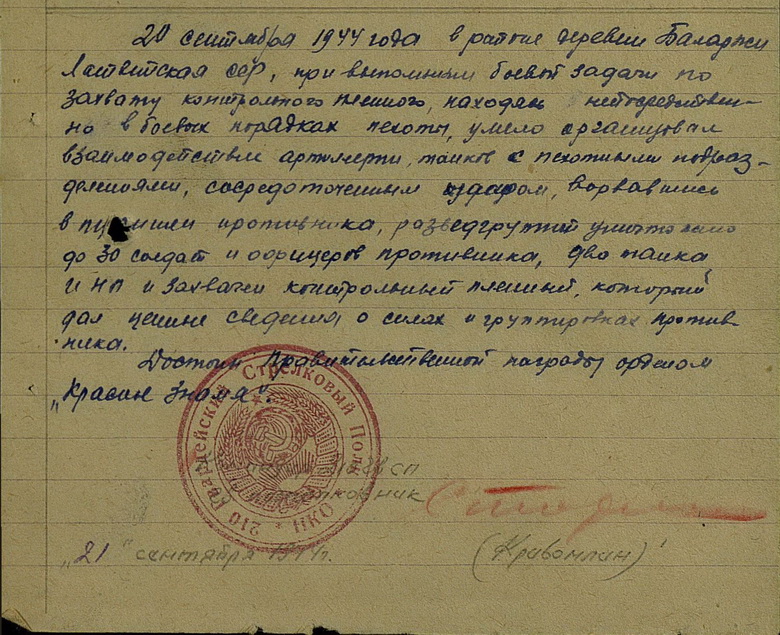 20 сентября 1944 года в районе деревни Баларжи
Латвийская сср, при выполнении боевой задачи по
захвату контрольного пленного, находясь непосредствен-
но в боевых порядках пехоты, умело организовал
взаимодействие артилерии, танков с пехотными подраз-
делениями, сосредоточенным ударом, ворвавшись
в противника, разведгруппой уничтожено
до 30 солдат и офицеров противника, два танка
и НП и захвачен контрольный пленный, который
дал ценные сведения о силах и группировках против-
ника.
Достоин Правительственной награды орденом
„Красное Знамя".
210 Гвардейский Стрелковый Полк * НКО *
сп
"21" сентября 1944 г.